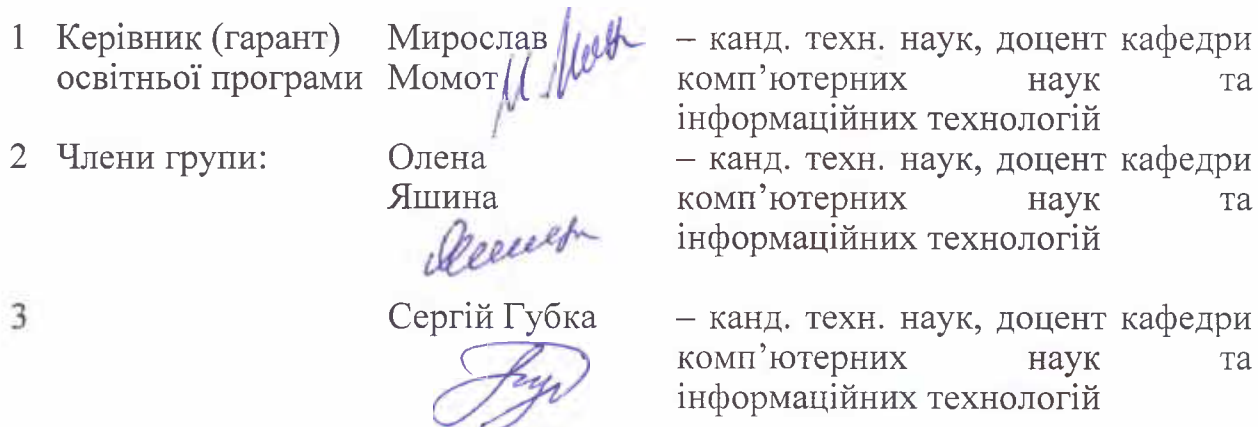 1 Керівник (гарант) Мирослав – канд. техн. наук, доцент кафедри
освітньої програми Момот комп’ютерних наук та
інформаційних технологій
2 Члени групи: Олена – канд. техн. наук, доцент кафедри
Яшина комп’ютерних наук та
інформаційних технологій
3 Сергій Губка – канд. техн. наук, доцент кафедри
комп’ютерних наук та
інформаційних технологій